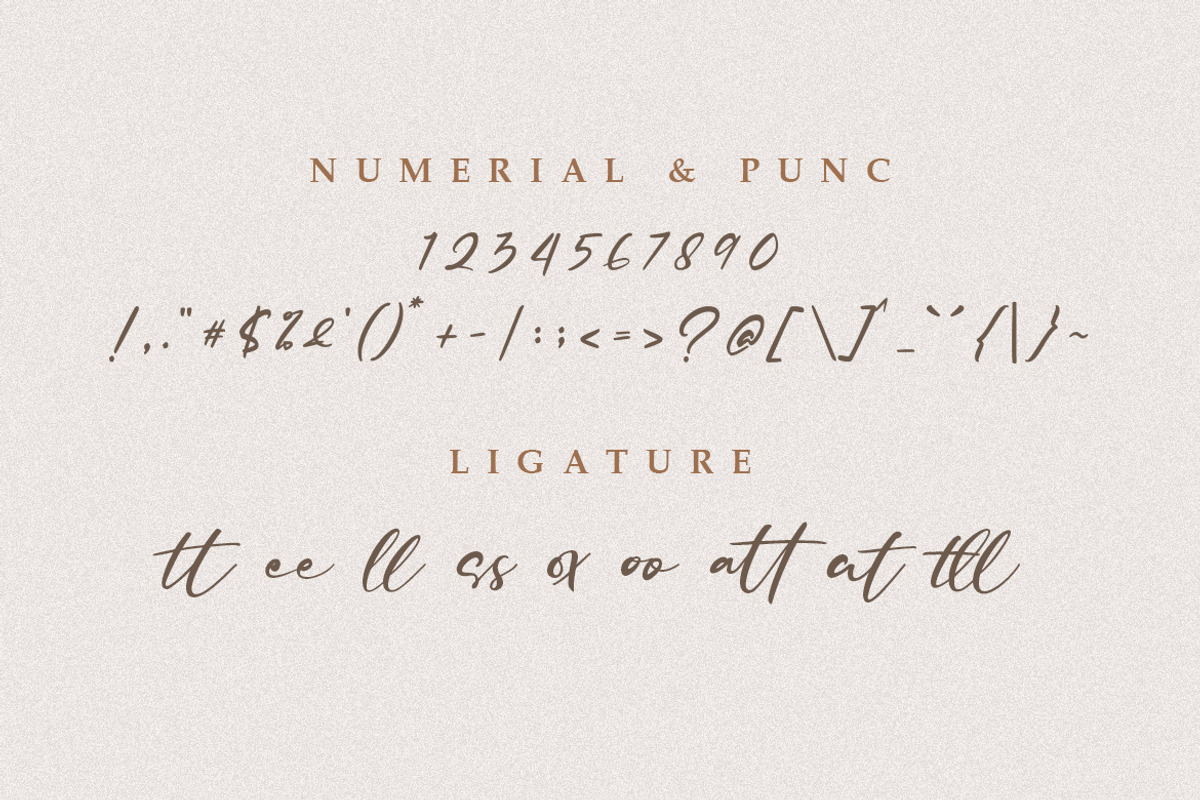 NUMERIAL & PUNC
1234567890
!,."#$%&'()*+-/:;<=>?@[\]^_`´{|}~
LIGATURE
tt ee ll ss ox oo att at tll